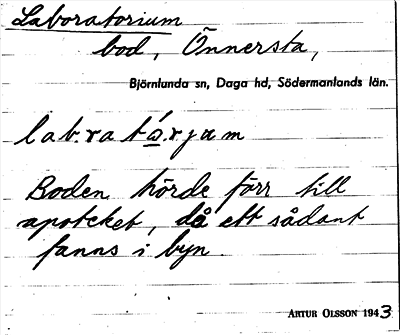 Laboratorium
bod, Önnersta,
Björnlunda sn, Daga hd, Södermanlands län.
lab.rató.rjum
Boden hörde förr till
apoteket, då ett sådant
fanns i byn.
ARTUR OLSSON 1943